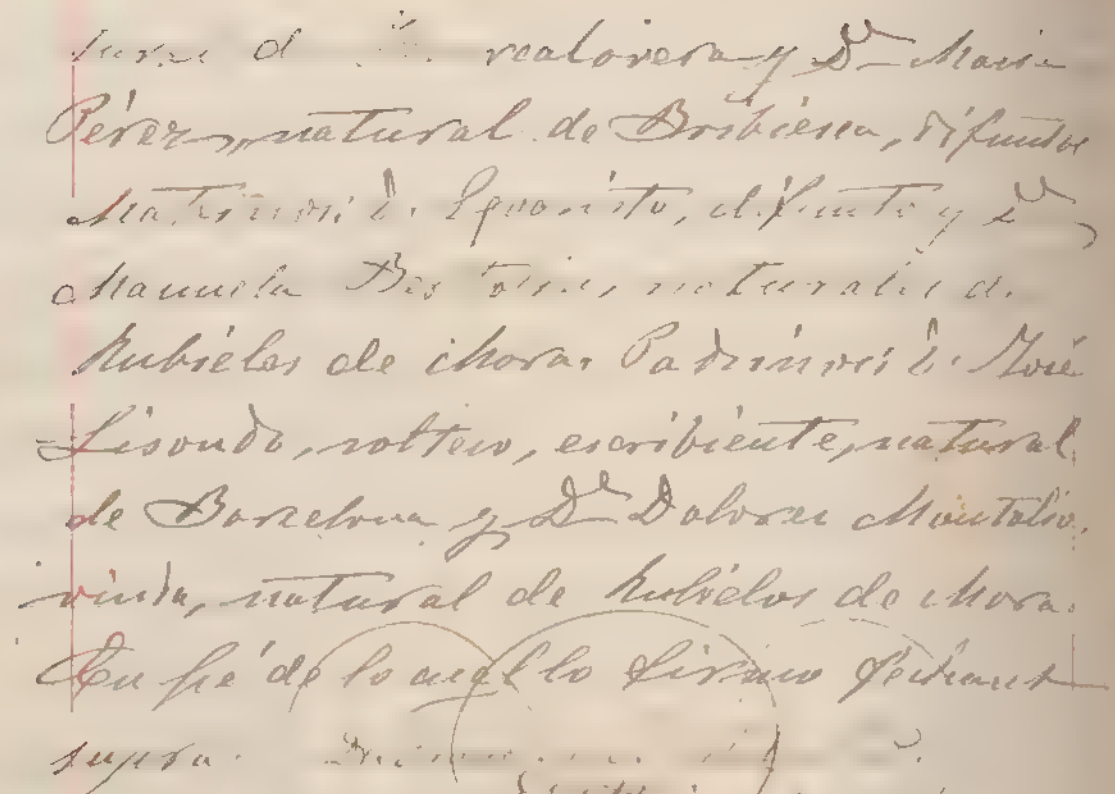 y Dª Maria
Pérez, natural de Bribiesca, difuntos
Maternos: D. Evaristo, difunto y Dª
Manuela naturales de
Rubielos de Mora. Padrinos: D. José
Lisondo, soltero, escribiente, natural
de Barcelona y Dª Dolores
viuda, natural de Rubielos de Mora.
En fé de lo cual lo firmo fecha ut
supra.